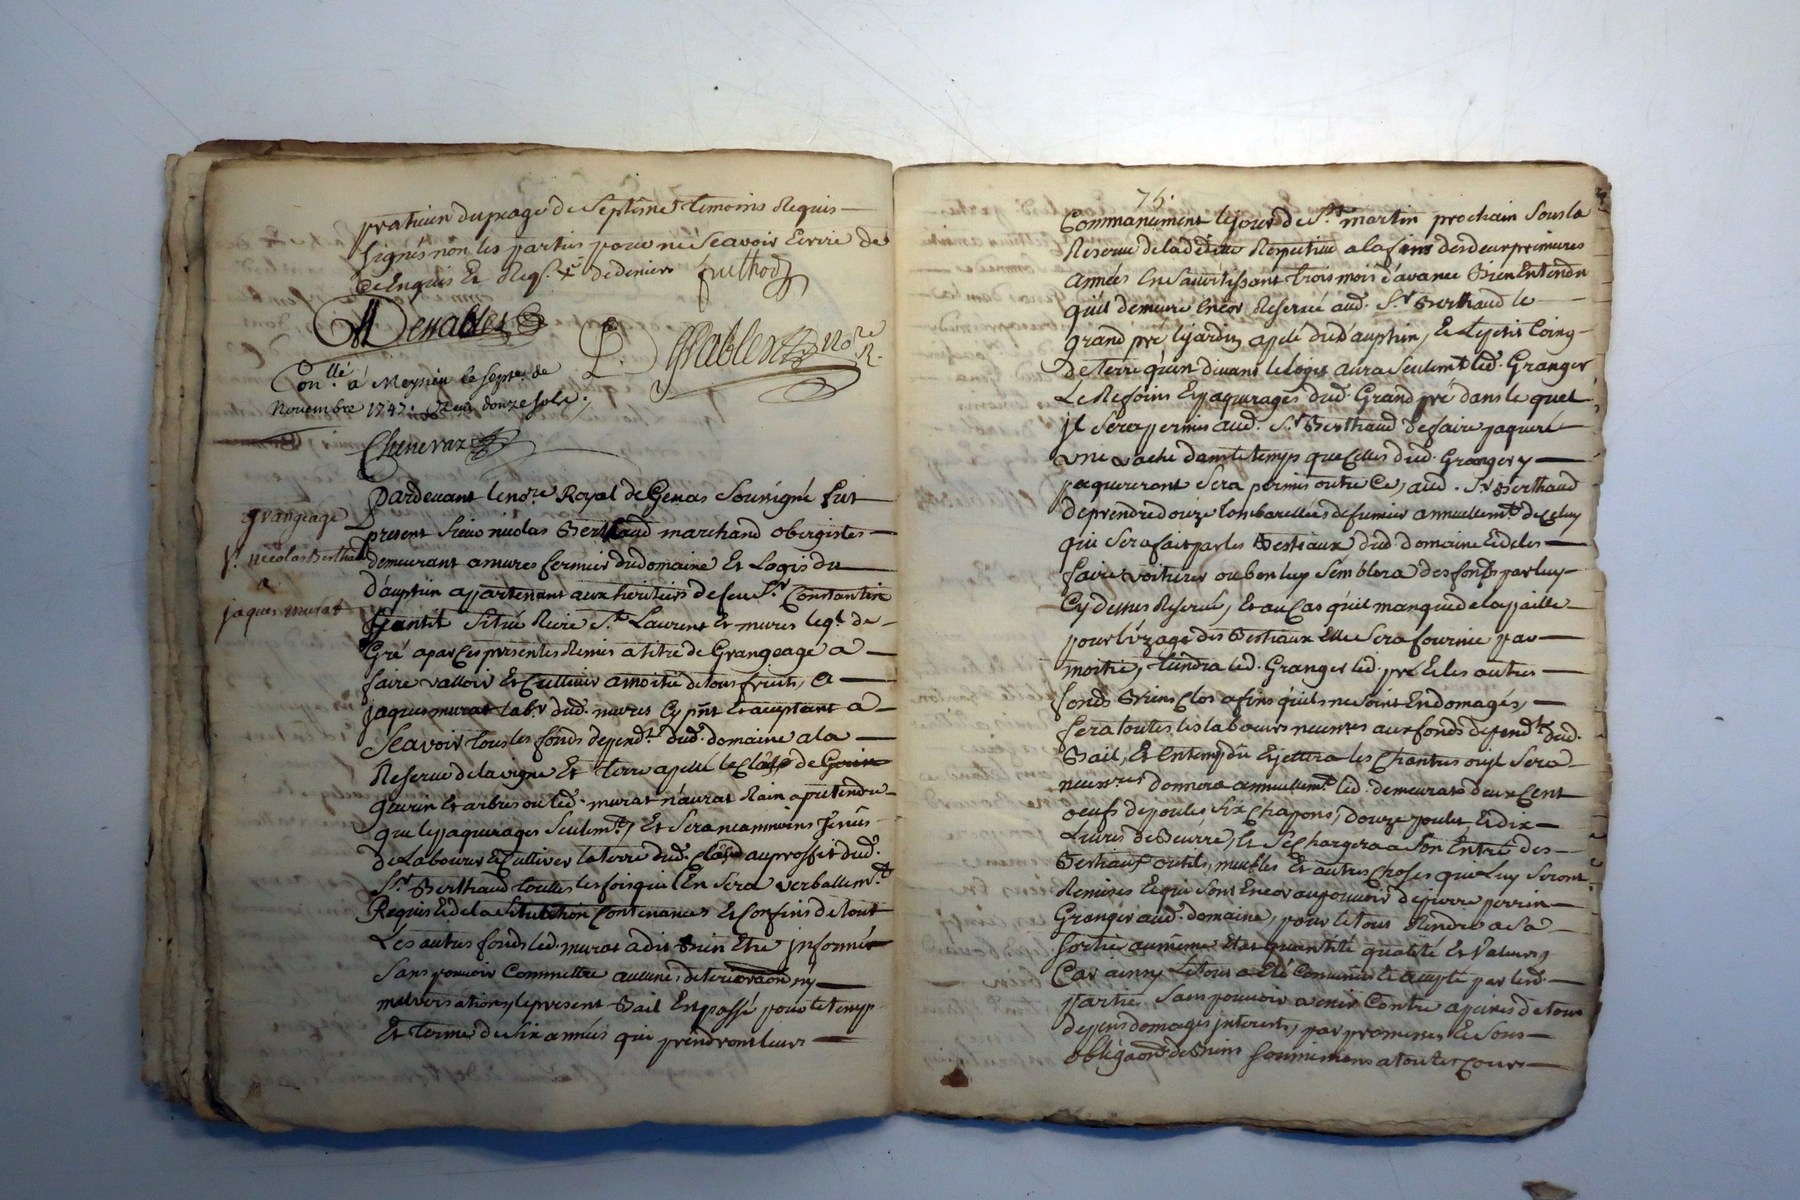 praticien du peage de Septeme temoins Requis
Signés non les parties pour ne Scavoir Ecrire de
Ce Enquis et Req.s
Desables
Con.llé á Meysieu le Septe. de
Novembre 1747. Reçu douze sols.
Chenevaz
grangeage
Sr. nicolas Berthaud
a
jaques murat
Pardevant le no.re Royal de Genas Sousigné fut
present Sieur nicolas Berthaud marchand obergiste
demeurant a mures fermier du domaine Et Logis du
d'auphin appartenant aux heritiers de feu S.r Constantin
Gentit Situé Riere S.t Laurent Et mures leql. de
Gré a par Ces presentes Remis a titre de Grangeage a
faire valloir Et Cultiver a moitié de tous fruits, a
jaques murat lab.r dud. mures Cy pnt Et aceptant a
Scavoir tous les fonds depend.t dud. domaine a la
Reserve de la vigne Et terre apellé le Clos de
Guerin Et arbres ou led. murat n'aurat Rien a pretendre
que les paquerages Seulem.t, Et Sera neammoins Tenus
de Labourer Et Culliver la terre dud. Clos au proffit dud.
S.r Berthaud touttes les fois qu'il En Sera verballem.t
Requis Et de la Situation Contenances Et Confins de tout
Les autres fonds led. murat a dit Bien Etre jnformé
Sans pouvoir Commettre aucune deterioraon ny
malversations, le present Bail Est passé pour le temp
Et terme de Six années qui prendront leurs
75.
Commancement le jour de S.t martin prochain Sous la
Reserve de la déditte Respective a la fin des deux premieres
années En S'avertissant trois mois d'avance Bien Entendu
qu'il demeure Encor Reservé aud. S.r Berthaud le
grand pré le jardin apelé du d'auphin, Et le petit Coing
de terre qu'en devant le logis aura Seulem.t led. Granger
Le Refoins Et paquerages dud. Grand pré dans le quel
jl Sera permis aud. S.r Berthaud de faire paquere
une vache dans le temps que Celles dud. Granger y
paqureront Sera permis outre Ce, aud. S.r Berthaud
de prendre douze tombarellées de fumier annuellem.t de Celuy
qui Sera fait par les Bestiaux dud. domaine Et de les
faire voiturer ou bon luy Semblera des fonds par luy
Cy dessus Reservé, Et au Cas qu'il manque de la paille
pour l'uzage des Bestiaux Elle Sera fournie par
moitié, tiendra led. Granger led. pré Et les autres
fonds Bien Clos afins qu'ils ne Soint Endomagés,
fera toutes les labours neuves aux fonds depend.t dud.
Bail, Et En temp du Et jettera les Chantres ou jl Sera
necess.re donnera annuellem.t led. demeurat deux Cent
oeufs de poules Six Chapons, douze poulet, Et dix
Livres de Beurre, Et Se Chargera a Son Entré des
Bestiaux outils, meubles Et autres Choses que Luy Seront
Remises Et qui Sont Encor au pouvoir de pierre perrin
Granger aud. domaine, pour le tous Rendre a Sa
Sortie au même Etat quantité qualité Et Valeurs,
Car ainsy Le tous a Eté Convenu Et accepté par lesd.
parties Sans pouvoir a venir Contre a peines de tous
depens domages jnterests, par promesses Et Sous
obligaon de Biens Soumissions a toutes Cours